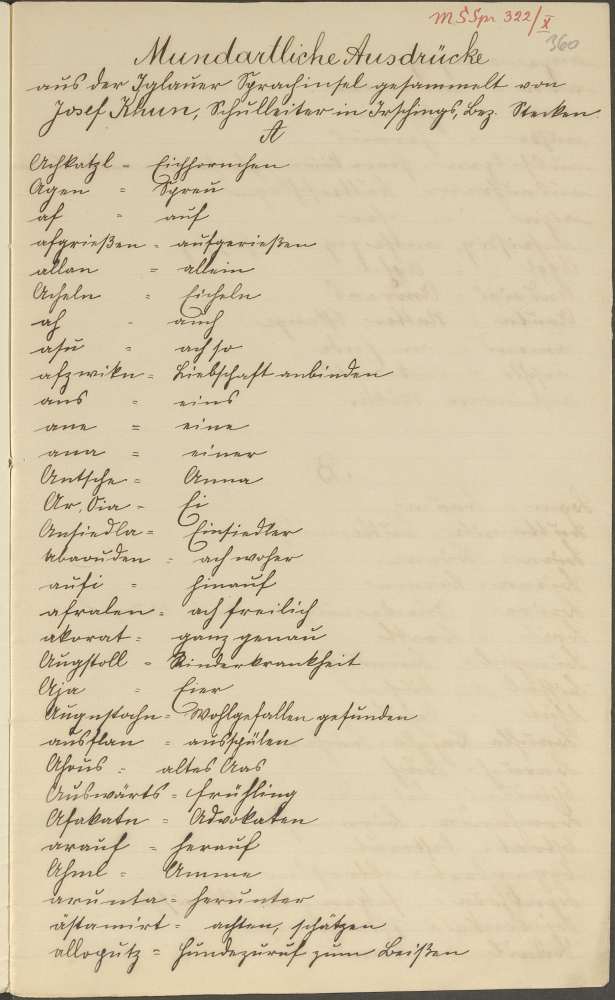 M S Spr 322/X
360
Mundartliche Ausdrücke
aus der Iglauer Sprachinsel gesammelt von
Josef Khun, Schulleiter in Irschings, Bez. Stecken.
A
Achkatzl - Eichhörnchen
Agen - Spreu
af - auf
afgrießen - aufgerießen
allan = allein
Acheln - Eicheln
ah - auch
asu - ach so
afzwikn = Liebschaft anbinden
ans - eins
ane = eine
ana = einer
Antsche - Anna
Ar, Oia - Ei
Ansiedla = Einsiedler
abaouden = ach woher
aufi = hinauf
afralen = ach freilich
akorat = ganz genau
Augstoll - Rinderkrankheit
Aja - Eier
Augnstochn = Wohlgefallen gefunden
ausflan = ausspülen
Ahous = altes Aas
Auswärts = Frühling
Afakatn = Advokaten
arauf = herauf
Ahml = Amme
arunta = herunter
ästamirt = achten, schätzen
allogutz = Hundezuruf zum Beißen